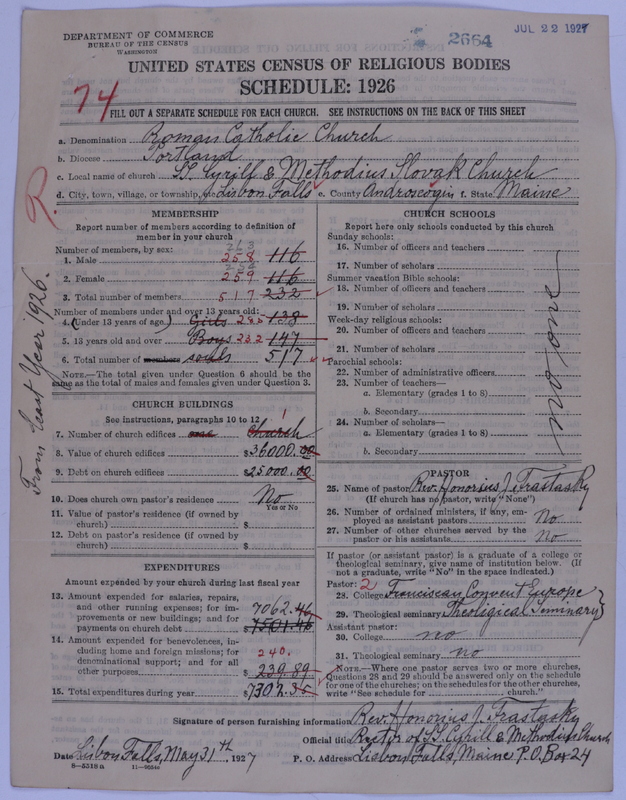 DEPARTMENT OF COMMERCE
BUREAU OF THE CENSUS
WASHINGTON
2664
JUL 22 1927
UNITED STATES CENSUS OF RELIGIOUS BODIES
SCHEDULE: 1926
74
FILL OUT A SEPARATE SCHEDULE FOR EACH CHURCH. SEE INSTRUCTIONS ON THE BACK OF THIS SHEET
a. Denomination Roman Catholic Church
b. Diocese Portland
c. Local name of church SS. Cyrill & Methodius Slovak Church
d. City, town, village, or township Lisbon Falls e. County Androscogin f. State Maine
From Last Year 1926.
MEMBERSHIP
Report number of members according to definition of
member in your church
Number of members, by sex:
1. Male 258 116
2. Female 259 116
3. Total number of members 517 232
Number of members under and over 13 years old:
4. (Under 13 years of age.) Girls 285 138
5. 13 years old and over Boys 232 147
6. Total number of members souls 517
NOTE.—The total given under Question 6 should be the
same as the total of males and females given under Question 3.
CHURCH BUILDINGS
See instructions, paragraphs 10 to 12
7. Number of church edifices one Church 1
8. Value of church edifices $36000.00
9. Debt on church edifices $25000.00
10. Does church own pastor's residence No
Yes or No
11. Value of pastor's residence (if owned by
church) $
12. Debt on pastor's residence (if owned by
church) $
EXPENDITURES
Amount expended by your church during last fiscal year
13. Amount expended for salaries, repairs,
and other running expenses; for im-
provements or new buildings; and for
payments on church debt $ 7062.46 7501.46
14. Amount expended for benevolences, in-
cluding home and foreign missions; for
denominational support; and for all
other purposes $ 240. 239.89
15. Total expenditures during year $7302.35
CHURCH SCHOOLS
Report here only schools conducted by this church
Sunday schools:
16. Number of officers and teachers
17. Number of scholars
Summer vacation Bible schools:
18. Number of officers and teachers
19. Number of scholars
Week-day religious schools:
20. Number of officers and teachers
21. Number of scholars
Parochial schools:
22. Number of administrative officers
23. Number of teachers—
a. Elementary (grades 1 to 8)
b. Secondary
24. Number of scholars—
a. Elementary (grades 1 to 8)
b. Secondary
no one
PASTOR
25. Name of pastor Rev. Honorius J. Frastasky
(If church has no pastor, write "None")
26. Number of ordained ministers, if any, em-
ployed as assistant pastors No
27. Number of other churches served by the
pastor or his assistants No
If pastor (or assistant pastor) is a graduate of a college or
theological seminary, give name of institution below. (If
not a graduate, write "No" in the space indicated.)
Pastor: 2
28. College Franciscan Convent Europe
29. Theological seminary Theoligical Seminary
Assistant pastor:
30. College no
31. Theological seminary no
NOTE.—Where one pastor serves two or more churches,
Questions 28 and 29 should be answered only on the schedule
for one of the churches; on the schedules for the other churches,
write "See schedule for church."
Signature of person furnishing information Rev. Honorius J. Frastasky
Official title Rector of SS. Cyrill & Methodius Church
Date Lisbon Falls, May 31th, 1927 P. O. Address Lisbon Falls, Maine P.O. Box 24
8—5518 a 11—9054